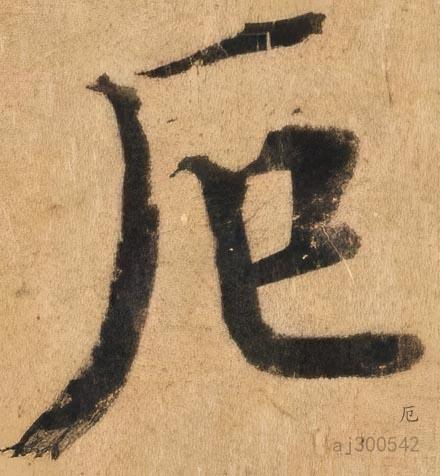 厄
厄
aj300542